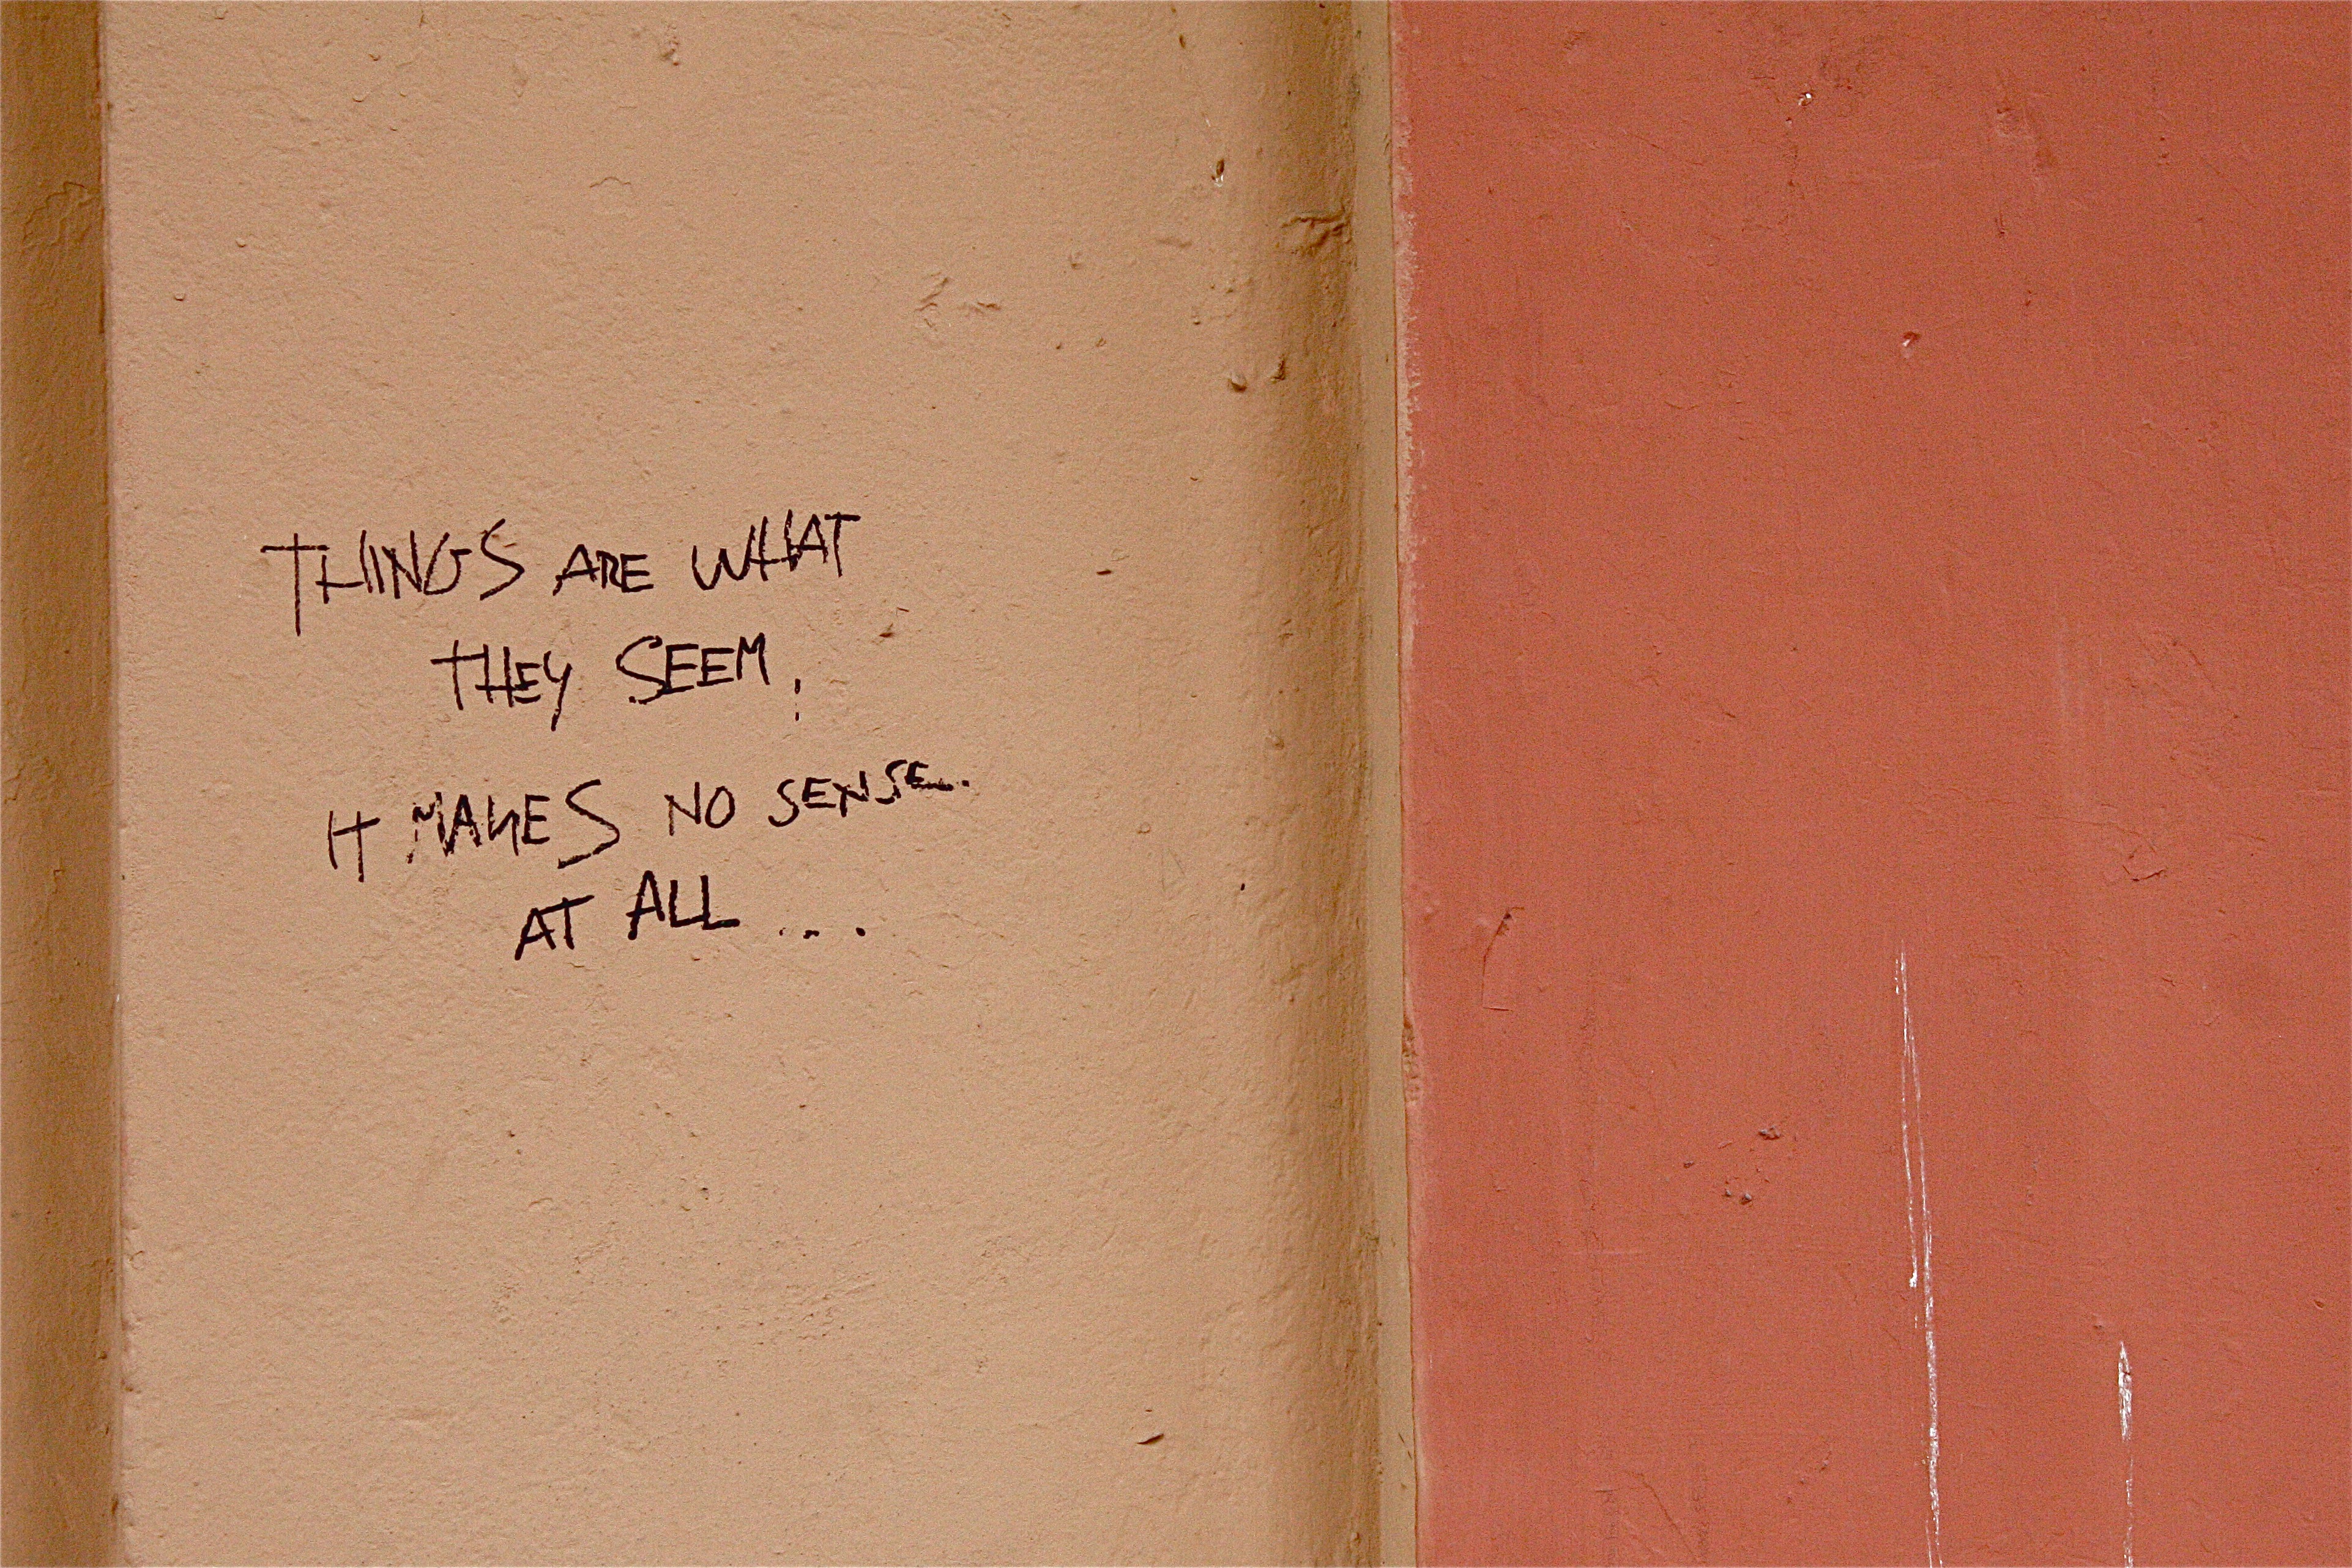 THINGS ARE WHAT
THEY SEEM!
IT MAKES NO SENSE.
AT ALL...